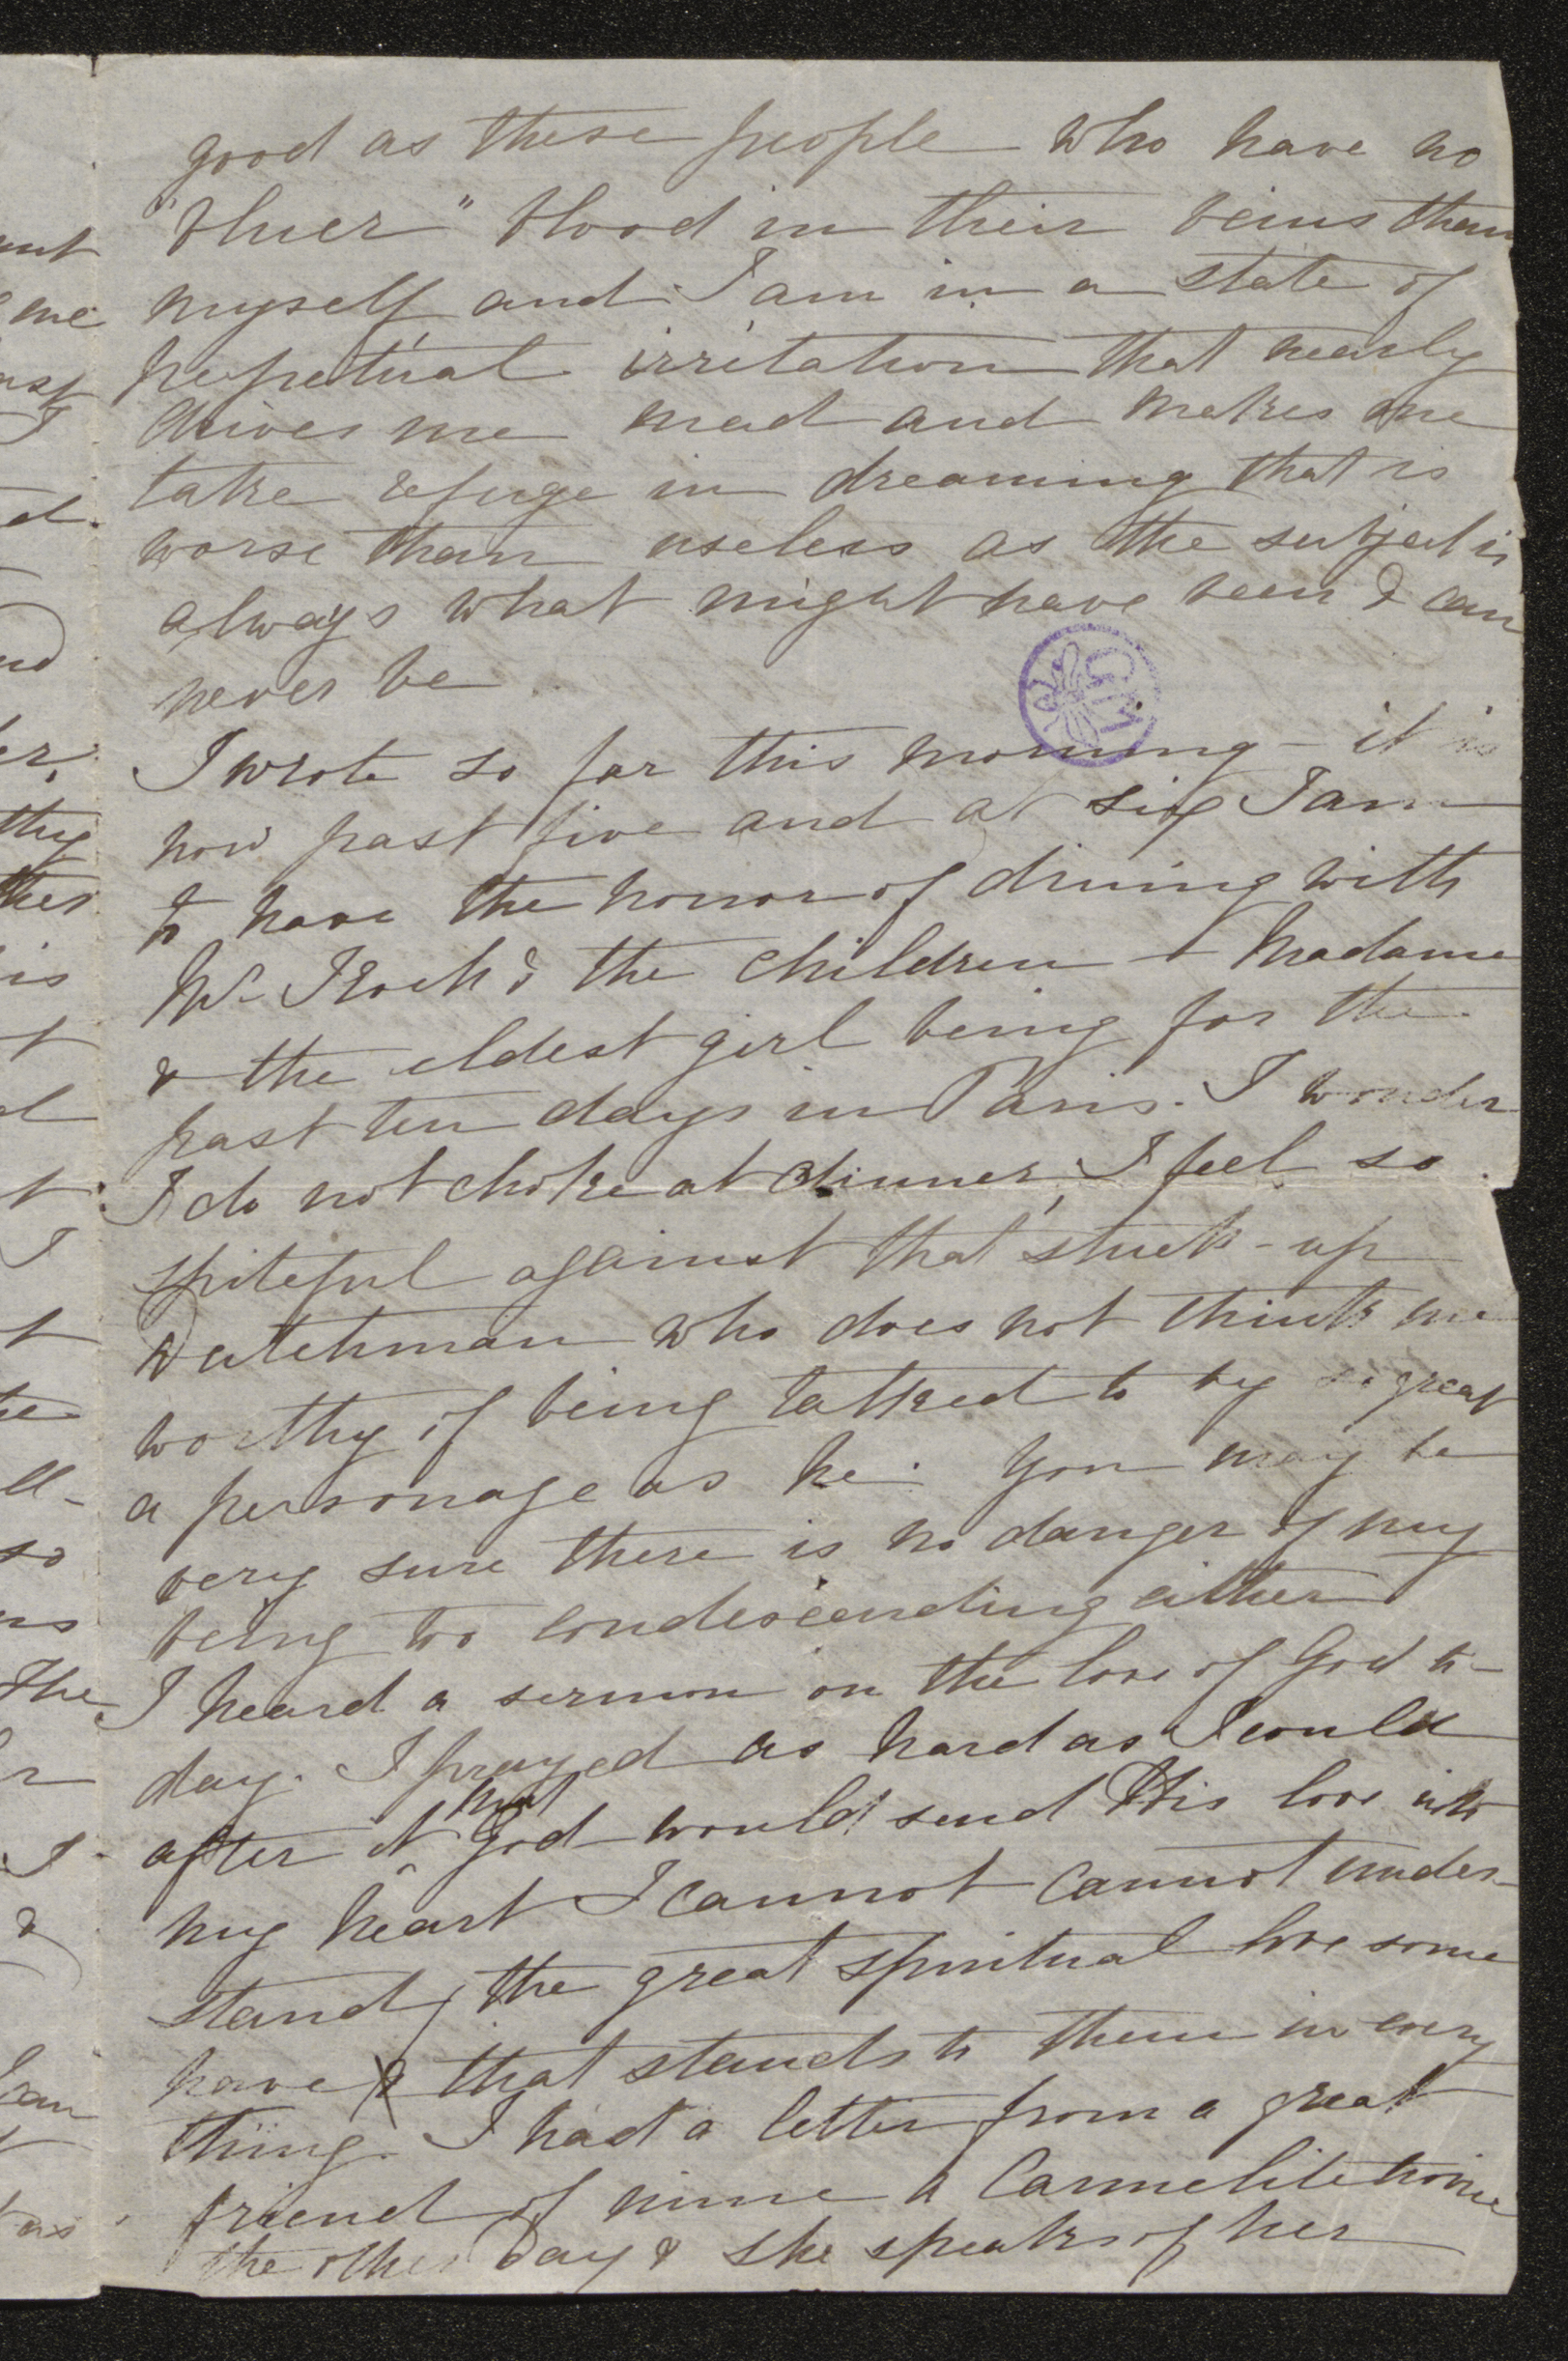 good as these people who have no
"bluer" blood in their veins than
myself and I am in a state of
perpetual irritation that nearly
drives me mad and makes me
take refuge in dreaming that is
worse than useless as the subject is
always what might have been & can
never be
I wrote so far this morning - it is
now past five and at six I am
to have the honor of dining with
Mr & the children - Madame
& the eldest girl being for the
past ten days in Paris. I wonder
I do not choke at dinner, I feel so
spiteful against that stuck-up
Dutchman who does not think me
worthy of being talked to by so great
a personage as he. You may be
very sure there is no danger of my
being too condescending either
I heard a sermon on the love of God to-
day. I prayed as hard as I could
after it that God would send His love into
my heart I cannot cannot under-
stand, the great spiritual love some
have & that stands to them in every
thing. I had a letter from a great
friend of mine a Carmelite novice
the other day & she speaks of her